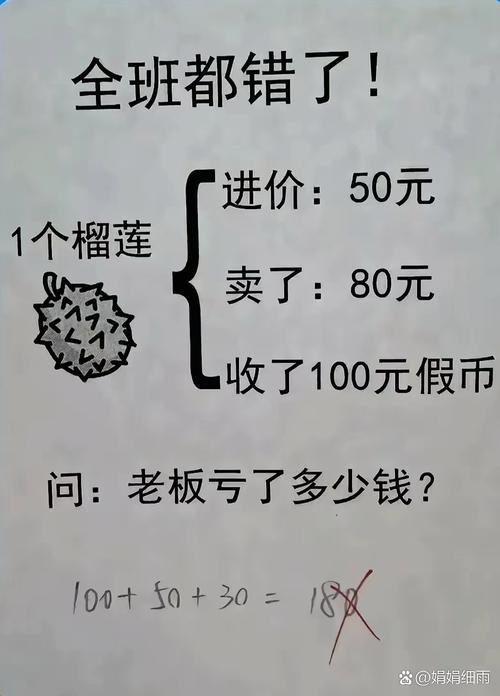 全班都错了！
1个榴莲
进价：50元
卖了：80元
收了100元假币
问：老板亏了多少钱？
100+50+30=180
@娟娟细雨